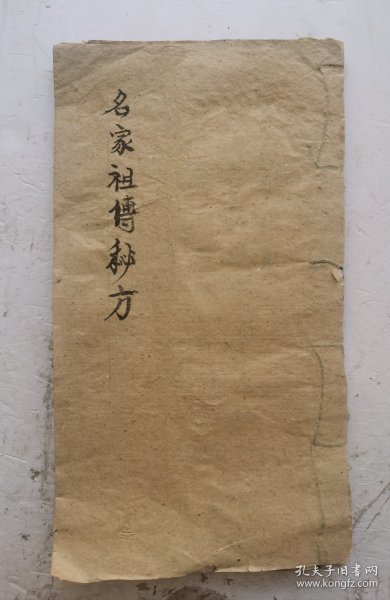 名家祖傳秘方
孔夫子旧书网
www.kongfz.com